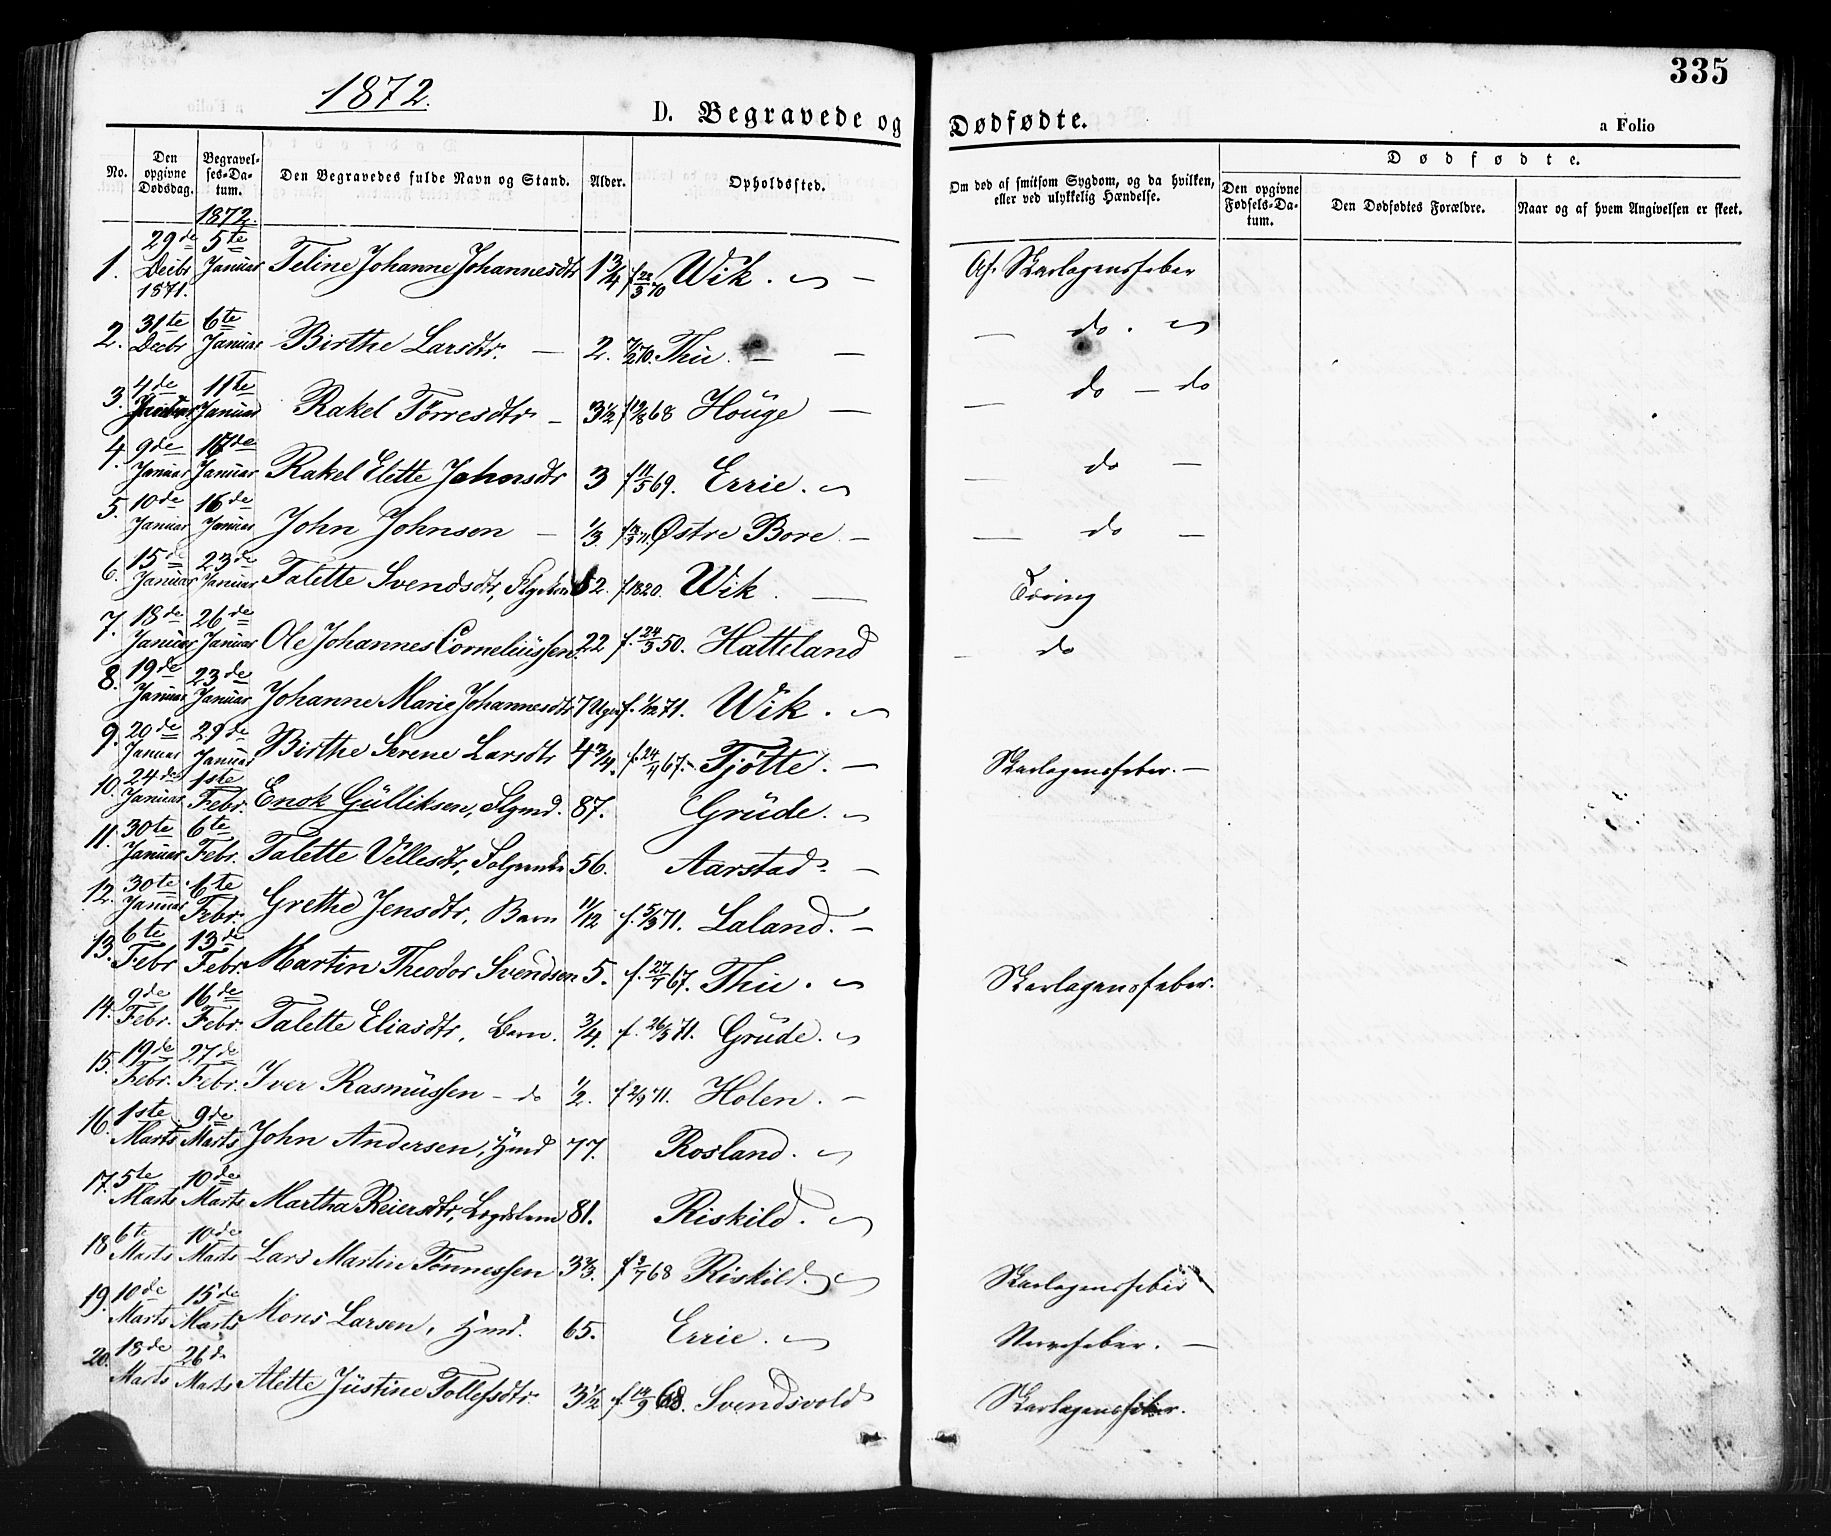 335
1872.
D. Begravede og Dødfødte.
a Folio
No.
Den opgivne Dødsdag.
Begravelses-Datum.
Den Begravedes fulde Navn og Stand.
Alder.
Opholdssted.
Om død af smitsom Sygdom, og da hvilken, eller ved ulykkelig Hændelse.
Dødfødte.
Den opgivne Fødsels-Datum.
Den Dødfødtes Forældre.
Naar og af hvem Angivelsen er skeet.
1872.
1. 29de Decbr 1871. 5te Januar Teline Johanne Johannesdtr 1 3/4 f 22/3 70 Wik. Af Skarlagensfeber
2. 31te Decbr 6te Januar Birthe Larsdtr. — 2. Thu. — — do.
3. 4de Januar 11te Januar Rakel Tørresdtr — 3 1/2 68 Houge — — do — do
4. 9de Januar 17de Januar Rakel Elette Johnsdtr 3 f 11/5 69. Errie. — do —
5. 10de Januar 16de Januar John Johnson — 1/3. Østre Bore. — — do —
6. 15de Januar 23de Januar Talette Svendsdtr, 52. f. 1820. Wik. — Tæring
7. 18de Januar 26de Januar Ole Johannes Corneliussen. 22 f. 24/3 50. Hatteland — do
8. 19de Januar 23de Januar Johanne Marie Johannesdtr 7 Uger f. 1/12 71. Wik.
9. 20de Januar 29de Januar Birthe Serene Larsdtr 4 3/4. f. 24/4 67. Tjøtte. — Skarlagensfeber. —
10. 24de Januar 1ste Febr. Enok Gulliksen, 87. Grude.
11. 30te Januar 6te Febr. Talette Vellesdtr, 56. Aarstad. —
12. 30te Januar 6te Febr. Grethe Jensdtr, Barn 11/12 f. 5/3 71. Laland. —
13. 6te Febr 13de Febr. Martin Theodor Svendsen 5. f. 27/1 67. Thu. Skarlagensfeber.
14. 9de Febr. 16de Febr. Talette Eliasdtr, Barn. 3/4. f. 26/5 71. Grude.
15. 19de Febr. 27de Febr. Iver Rasmussen — do 1/2. f 2/9 71. Holen. —
16. 1ste Marts 9de Marts John Andersen, 77. Rosland.
17. 5te Marts 10de Marts Martha Reiersdtr, Lægdslem 81. Riskild.
18 6te Marts 10de Marts Lars Martin Tønnessen 3 2/3. f 3/7 68 Riskild. Skarlagensfeber
19. 10de Marts 15de Marts Mons Larsen, 65. Errie. Nervefeber. —
20. 18de Marts 26de Marts Alette Justine Tollefsdtr. 3 1/2 f. 14/9 68. Svendsvold Skarlagensfeber.